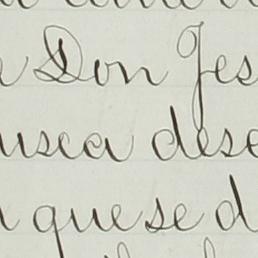 Don Jes
usca dese
que se d